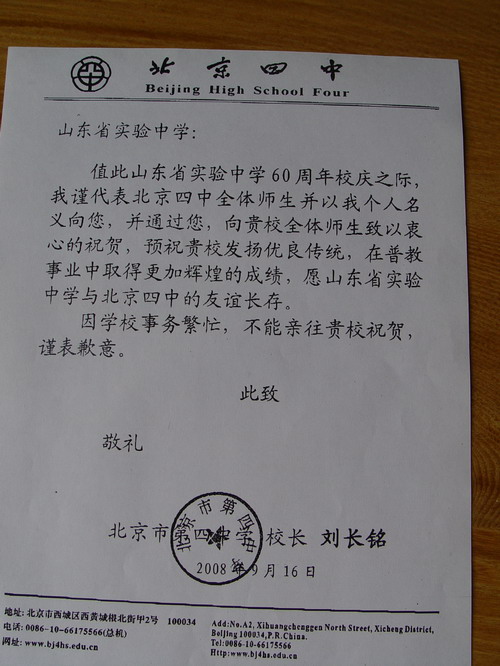 北京四中
Beijing High School Four
山东省实验中学：
值此山东省实验中学60周年校庆之际，
我谨代表北京四中全体师生并以我个人名
义向您，并通过您，向贵校全体师生致以衷
心的祝贺，预祝贵校发扬优良传统，在普教
事业中取得更加辉煌的成绩，愿山东省实验
中学与北京四中的友谊长存。
因学校事务繁忙，不能亲往贵校祝贺，
谨表歉意。
此致
敬礼
北京市第四中学 校长 刘长铭
北京市第四中学
2008年9月16日
地址: 北京市西城区西黄城根北街甲2号 100034
电话: 0086-10-66175566(总机)
网址: www.bj4hs.edu.cn
Add:No.A2, Xihuangchenggen North Street, Xicheng District,
Beijing 100034,P.R.China.
Tel:0086-10-66175566
Http://www.bj4hs.edu.cn